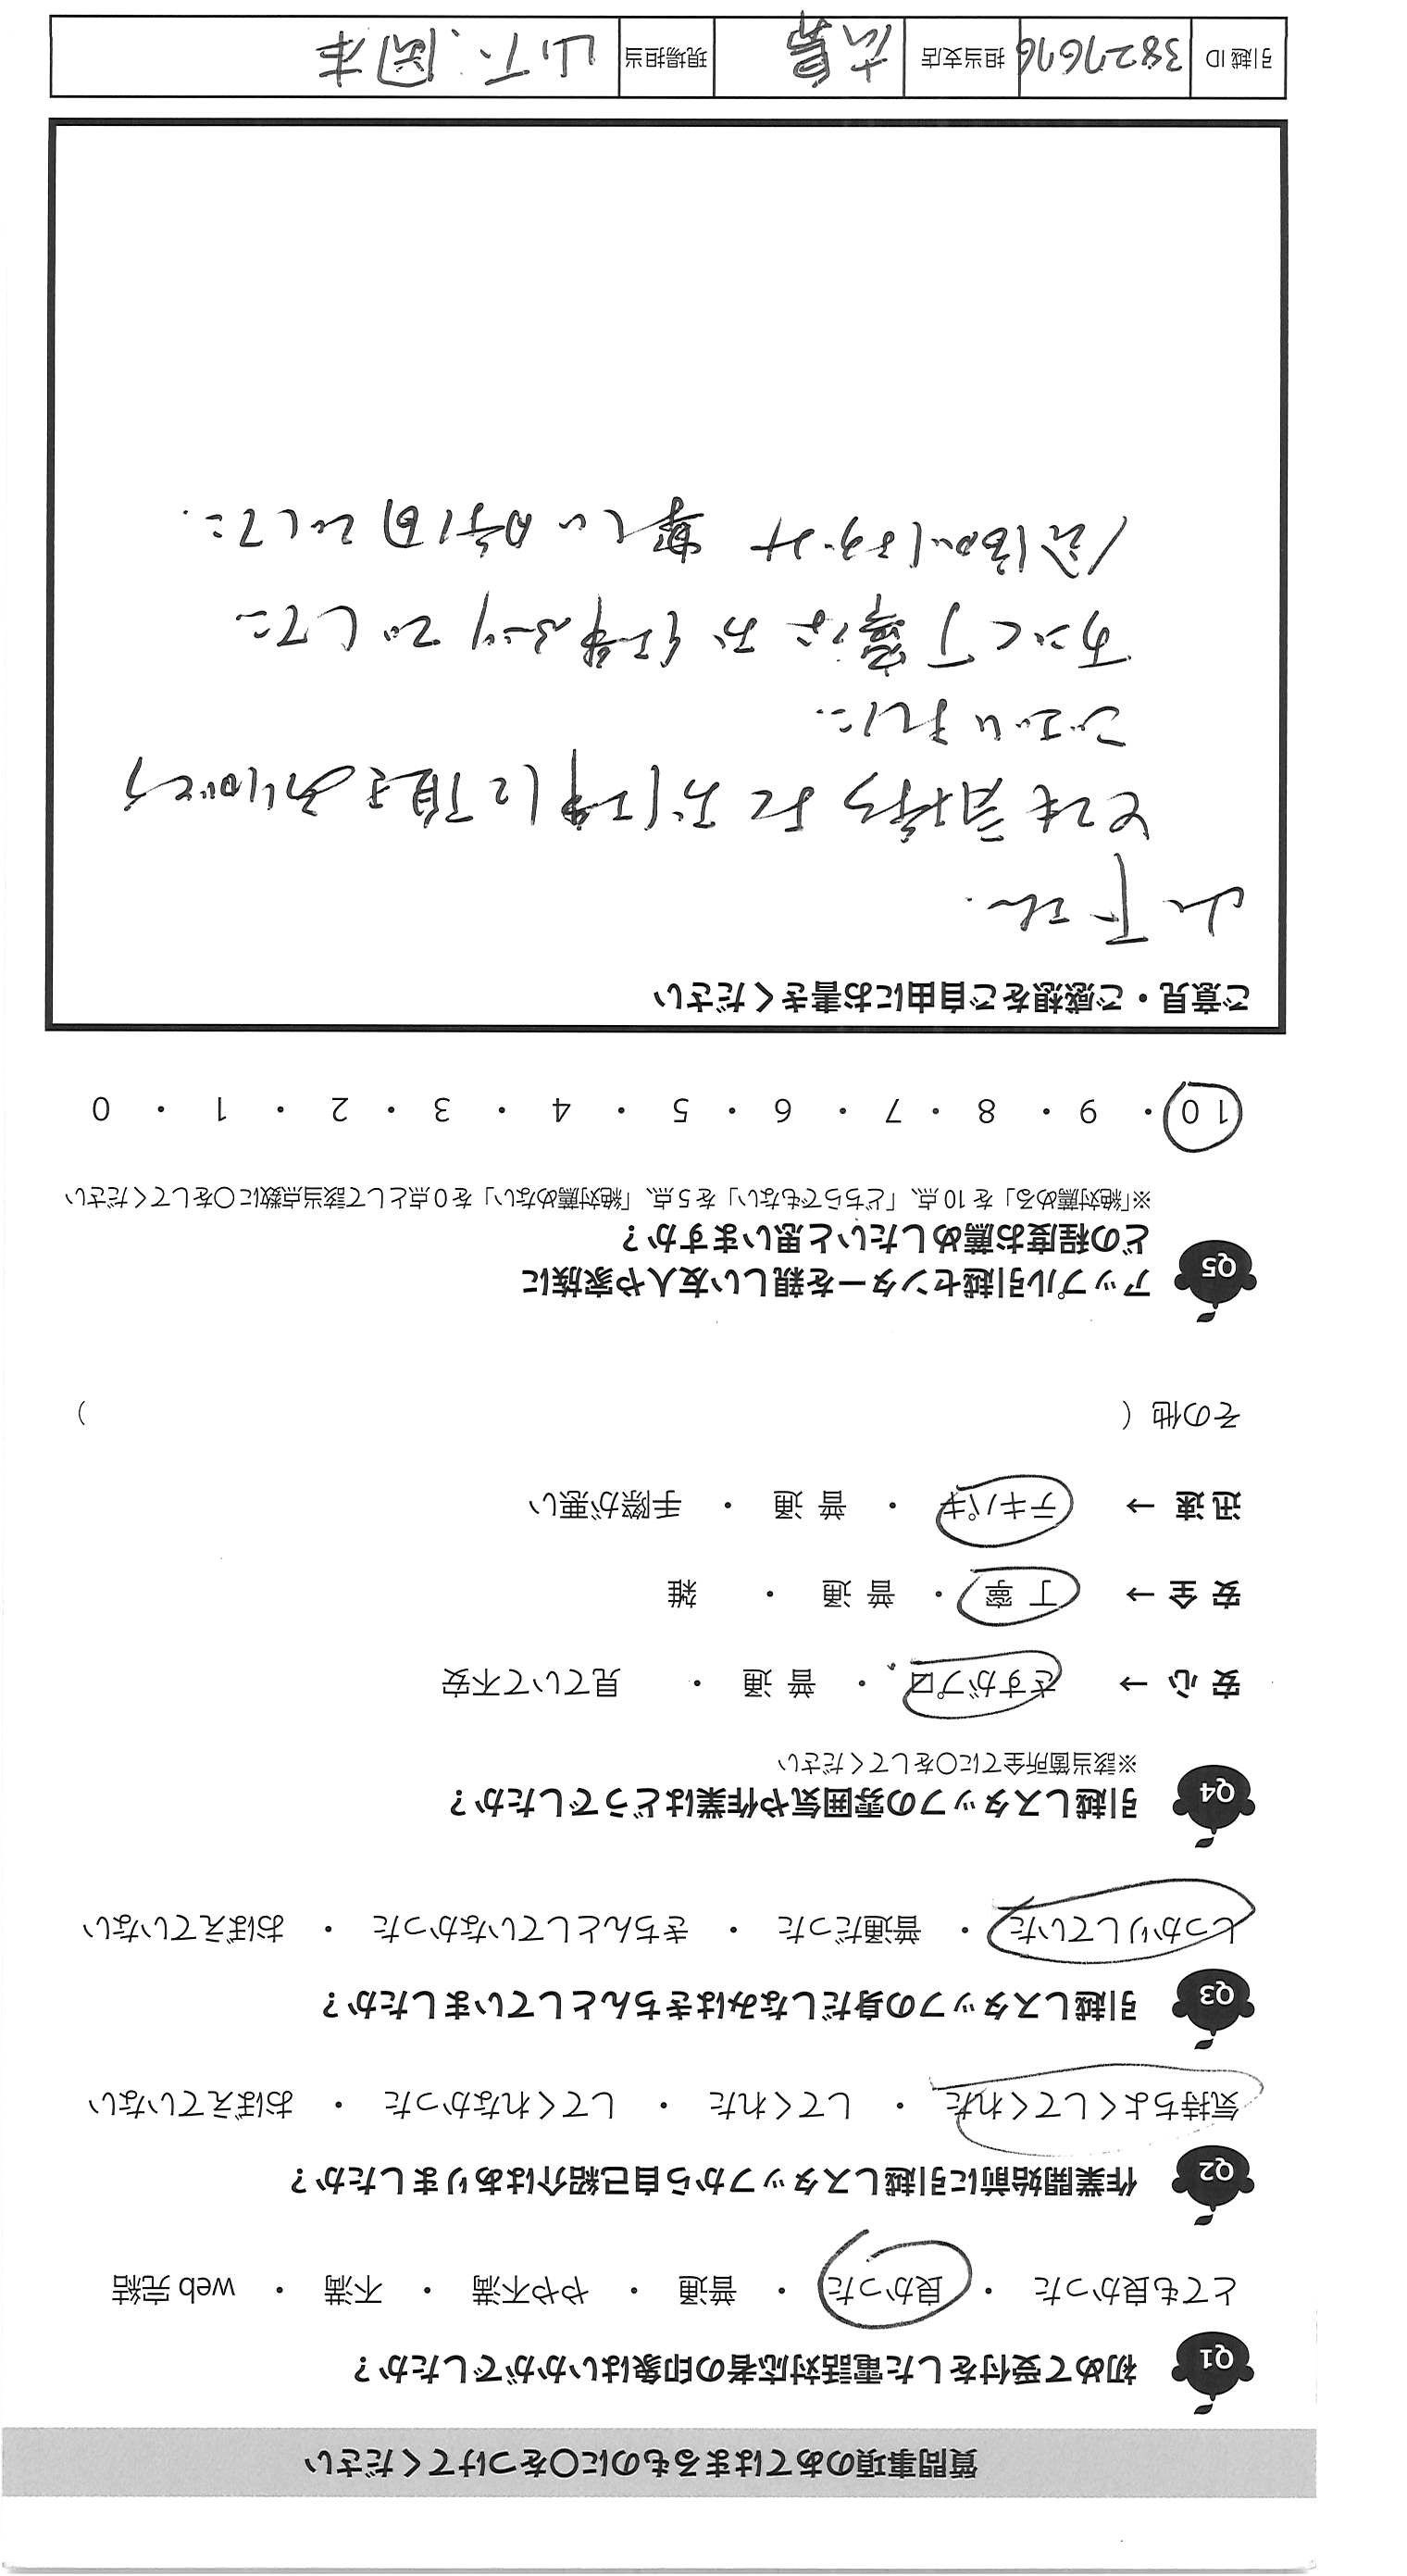 質問事項のあてはまるものに〇をつけてください
Q1 初めて受付をした電話対応者の印象はいかがでしたか？
とても良かった ・ 良かった ・ 普通 ・ やや不満 ・ 不満 ・ web完結
Q2 作業開始前に引越しスタッフから自己紹介はありましたか？
気持ちよくしてくれた ・ してくれた ・ してくれなかった ・ おぼえていない
Q3 引越しスタッフの身だしなみはきちんとしていましたか？
しっかりしていた ・ 普通だった ・ きちんとしていなかった ・ おぼえていない
Q4 引越しスタッフの雰囲気や作業はどうでしたか？
※該当箇所全てに〇をしてください
安心 → さすがプロ ・ 普通 ・ 見ていて不安
安全 → 丁寧 ・ 普通 ・ 雑
迅速 → テキパキ ・ 普通 ・ 手際が悪い
その他（ ）
Q5 アップル引越センターを親しい友人や家族に
どの程度お薦めしたいと思いますか？
※「絶対薦める」を10点、「どちらでもない」を5点、「絶対薦めない」を0点として該当点数に〇をしてください
10 ・ 9 ・ 8 ・ 7 ・ 6 ・ 5 ・ 4 ・ 3 ・ 2 ・ 1 ・ 0
ご意見・ご感想をご自由にお書きください
山下さん.
とても気持ちよくお仕事して頂きありがとう
ございました.
丁寧なお仕事ぶりでした
会話もはずみ 楽しい時間でした.
引越ID 38276716 担当支店 広島 現場担当 山下、岡本